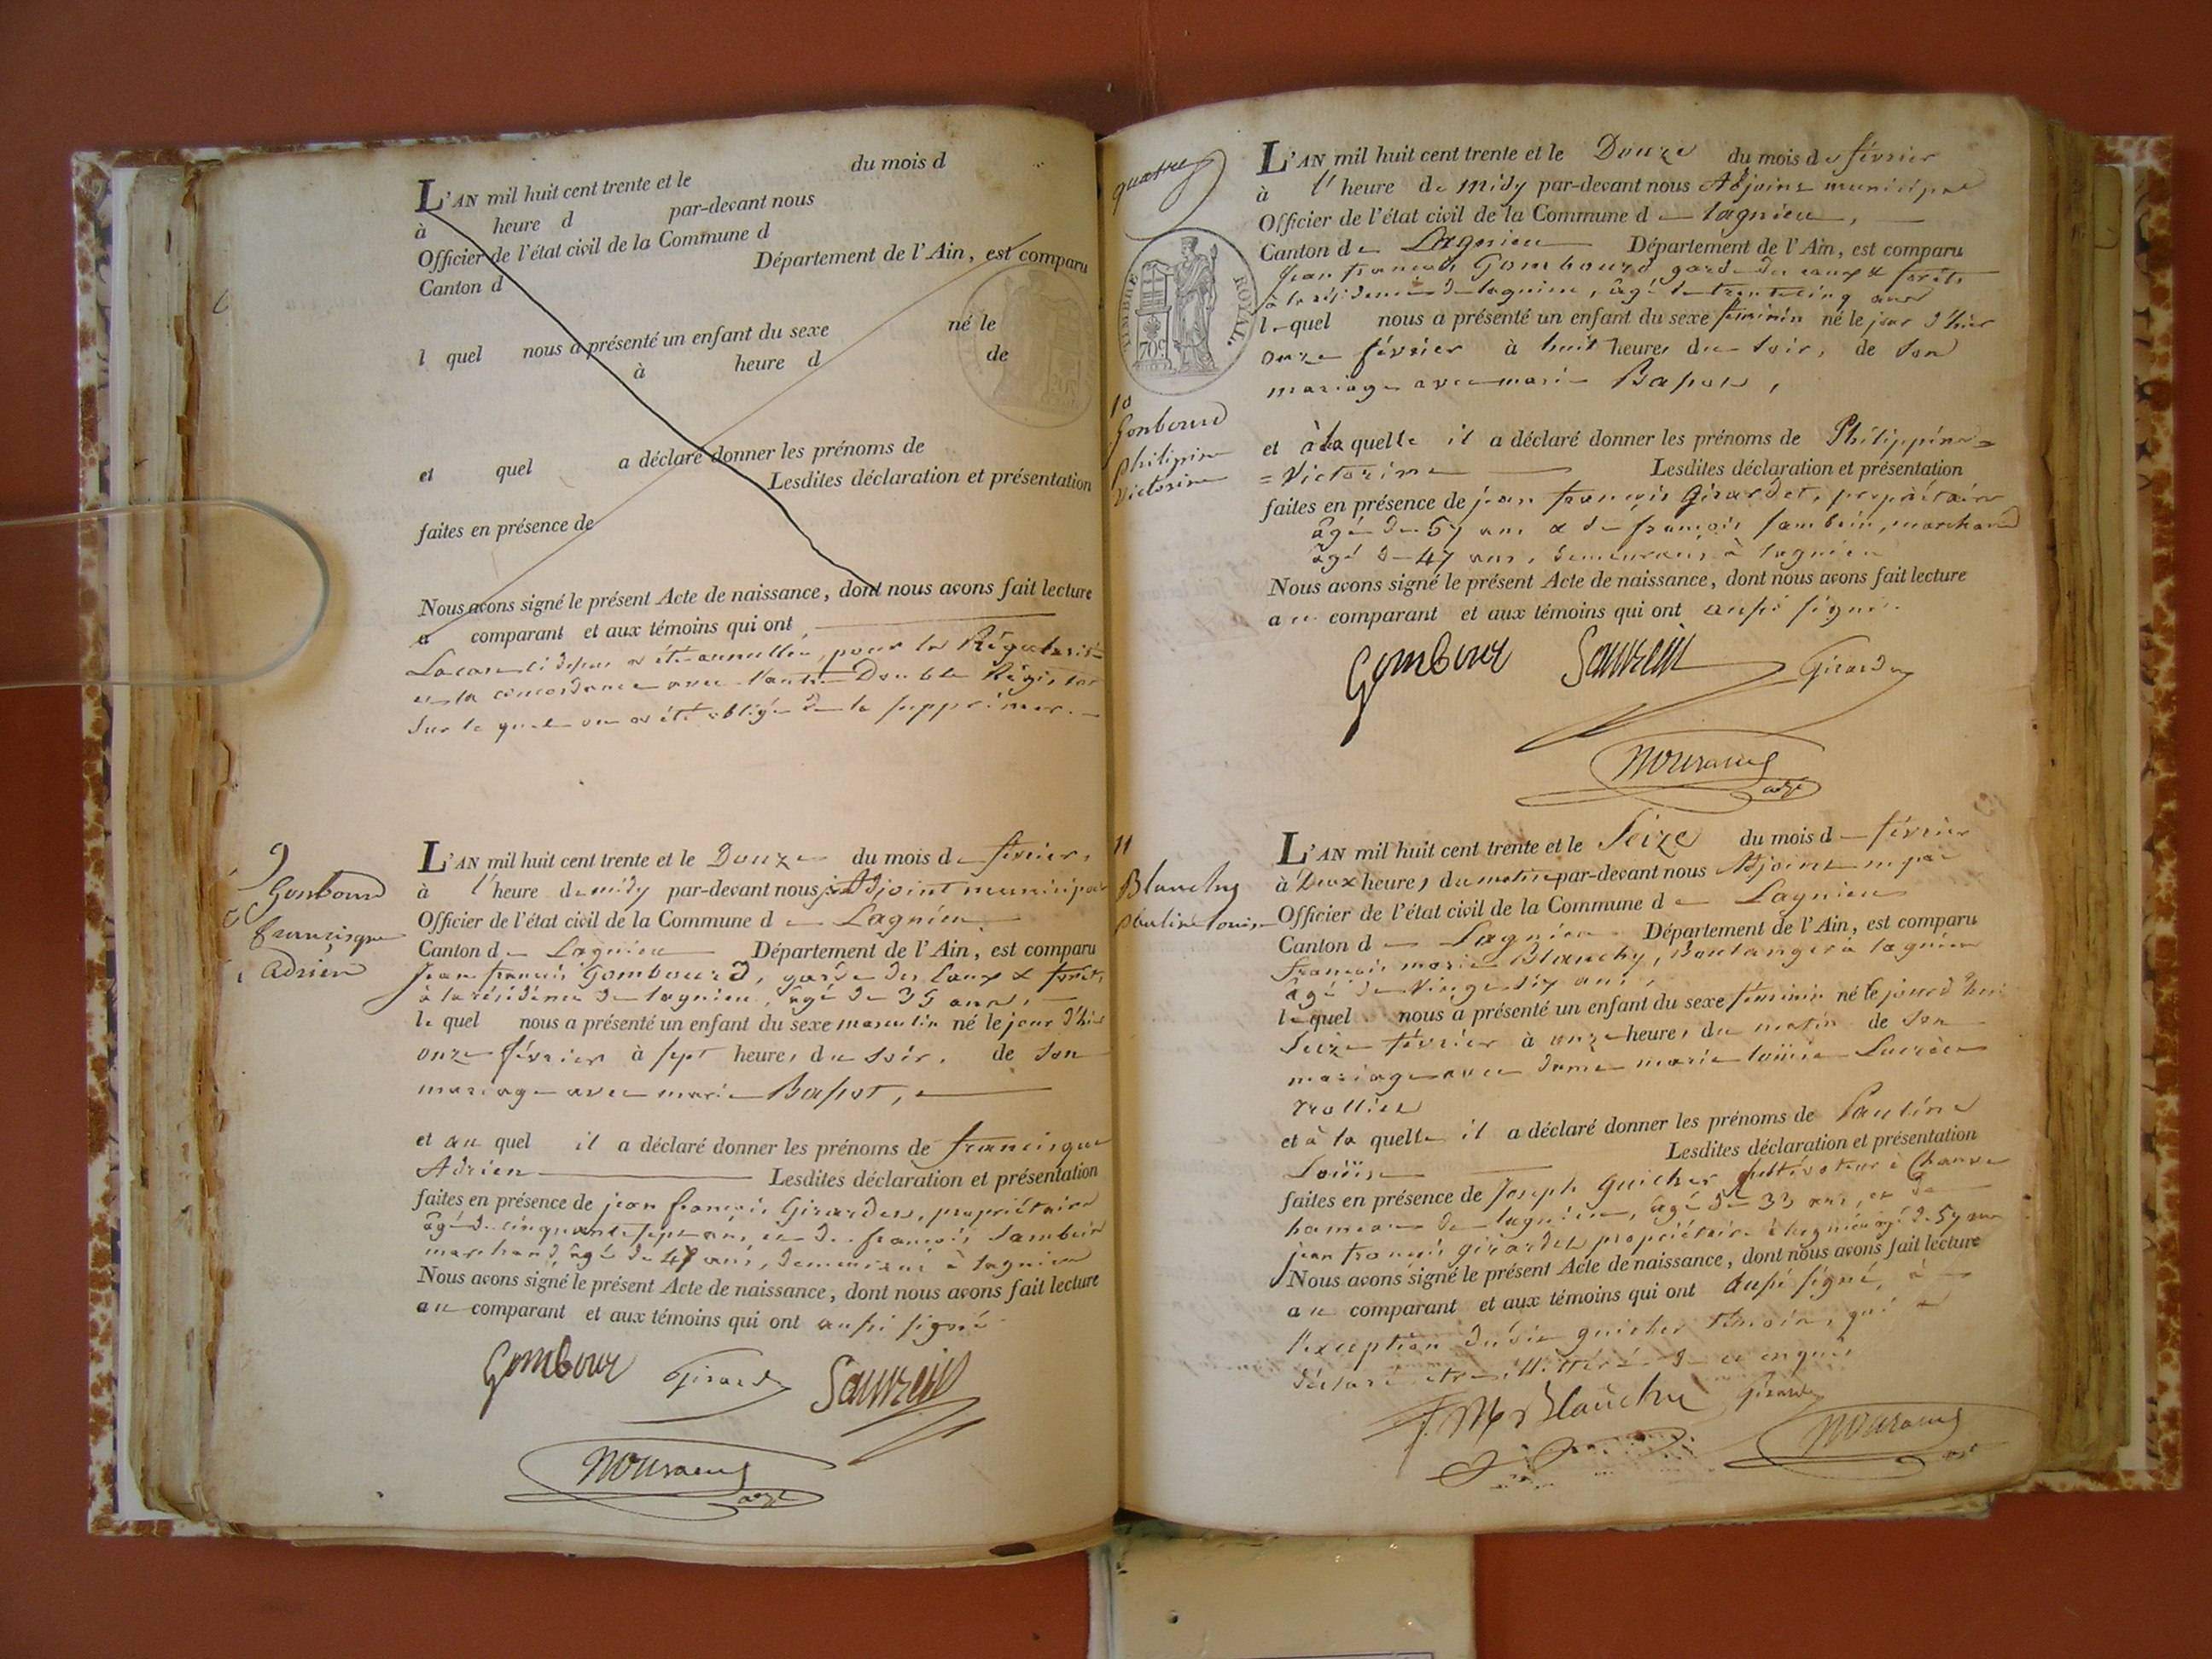 L'AN mil huit cent trente et le du mois d
à heure d par-devant nous
Officier de l'état civil de la Commune d
Canton d Département de l'Ain, est comparu
l quel nous a présenté un enfant du sexe né le
à heure d de
et quel a déclaré donner les prénoms de
Lesdites déclaration et présentation
faites en présence de
Nous avons signé le présent Acte de naissance, dont nous avons fait lecture
a comparant et aux témoins qui ont
La case ci dessus a été annullée, pour la Régularité
et la concordance avec l'autre Double Régistre
Sur le quel on a été obligé de la supprimer.
9
Gonbourd
francisque
adrien
L'AN mil huit cent trente et le Douze du mois de février,
à l'heure de midy par-devant nous Adjoint municipal
Officier de l'état civil de la Commune de Lagnieu
Canton de Lagnieu Département de l'Ain, est comparu
Jean françois Gombourd, garde des Eaux & forêts
à la résidence de lagnieu, âgé de 35 ans,
le quel nous a présenté un enfant du sexe masculin né le jour d'hier
onze février à sept heures du soir, de son
mariage avec marie Bassot,
et au quel il a déclaré donner les prénoms de francisque
Adrien Lesdites déclaration et présentation
faites en présence de jean françois Girardet, propriétaire
âgé de cinquante sept ans, et de françois
marchand, âgé de 47 ans, demeurant à lagnieu
Nous avons signé le présent Acte de naissance, dont nous avons fait lecture
au comparant et aux témoins qui ont aussi signé
Gombour Girardet
adjt
quatre
TIMBRE ROYAL.
70c
10
Gonbourd
philipine
victorine
L'AN mil huit cent trente et le Douze du mois de février
à l'heure de midy par-devant nous Adjoint municipal
Officier de l'état civil de la Commune de lagnieu,
Canton de Lagnieu Département de l'Ain, est comparu
Jean françois Gombourd, garde des eaux & forêts
à la résidence de lagnieu, âgé de trente cinq ans
le quel nous a présenté un enfant du sexe féminin né le jour d'hier
onze février à huit heures du soir, de son
mariage avec marie Bassot,
et à la quelle il a déclaré donner les prénoms de Philippine=
=Victorine Lesdites déclaration et présentation
faites en présence de jean françois Girardet, propriétaire
âgé de 57 ans & de françois marchand
âgé de 47 ans, demeurans à lagnieu
Nous avons signé le présent Acte de naissance, dont nous avons fait lecture
au comparant et aux témoins qui ont aussi signé.
Gombour Girardet
adjt
11
Blanchy
pauline louise
L'AN mil huit cent trente et le Seize du mois de février
à Deux heures du matin par-devant nous Adjoint mpal
Officier de l'état civil de la Commune de Lagnieu
Canton de Lagnieu Département de l'Ain, est comparu
françois marie Blanchy, Boulanger à lagnieu
âgé de Vingt six ans,
le quel nous a présenté un enfant du sexe féminin né le jourd'hui
Seize février à onze heures du matin de son
mariage avec dame marie louise Lucrèce
Trollier
et à la quelle il a déclaré donner les prénoms de Pauline
Louise Lesdites déclaration et présentation
faites en présence de Joseph Guicher Cultivateur à
hameau de lagnieu, âgé de 33 ans, et de
jean françois girardet propriétaire à lagnieu agé de 57 ans
Nous avons signé le présent Acte de naissance, dont nous avons fait lecture
au comparant et aux témoins qui ont aussi signé, à
l'exception dudit guicher témoin, qui a
déclaré être illitéré de ce enquis
f. M. Blanchy Girardet